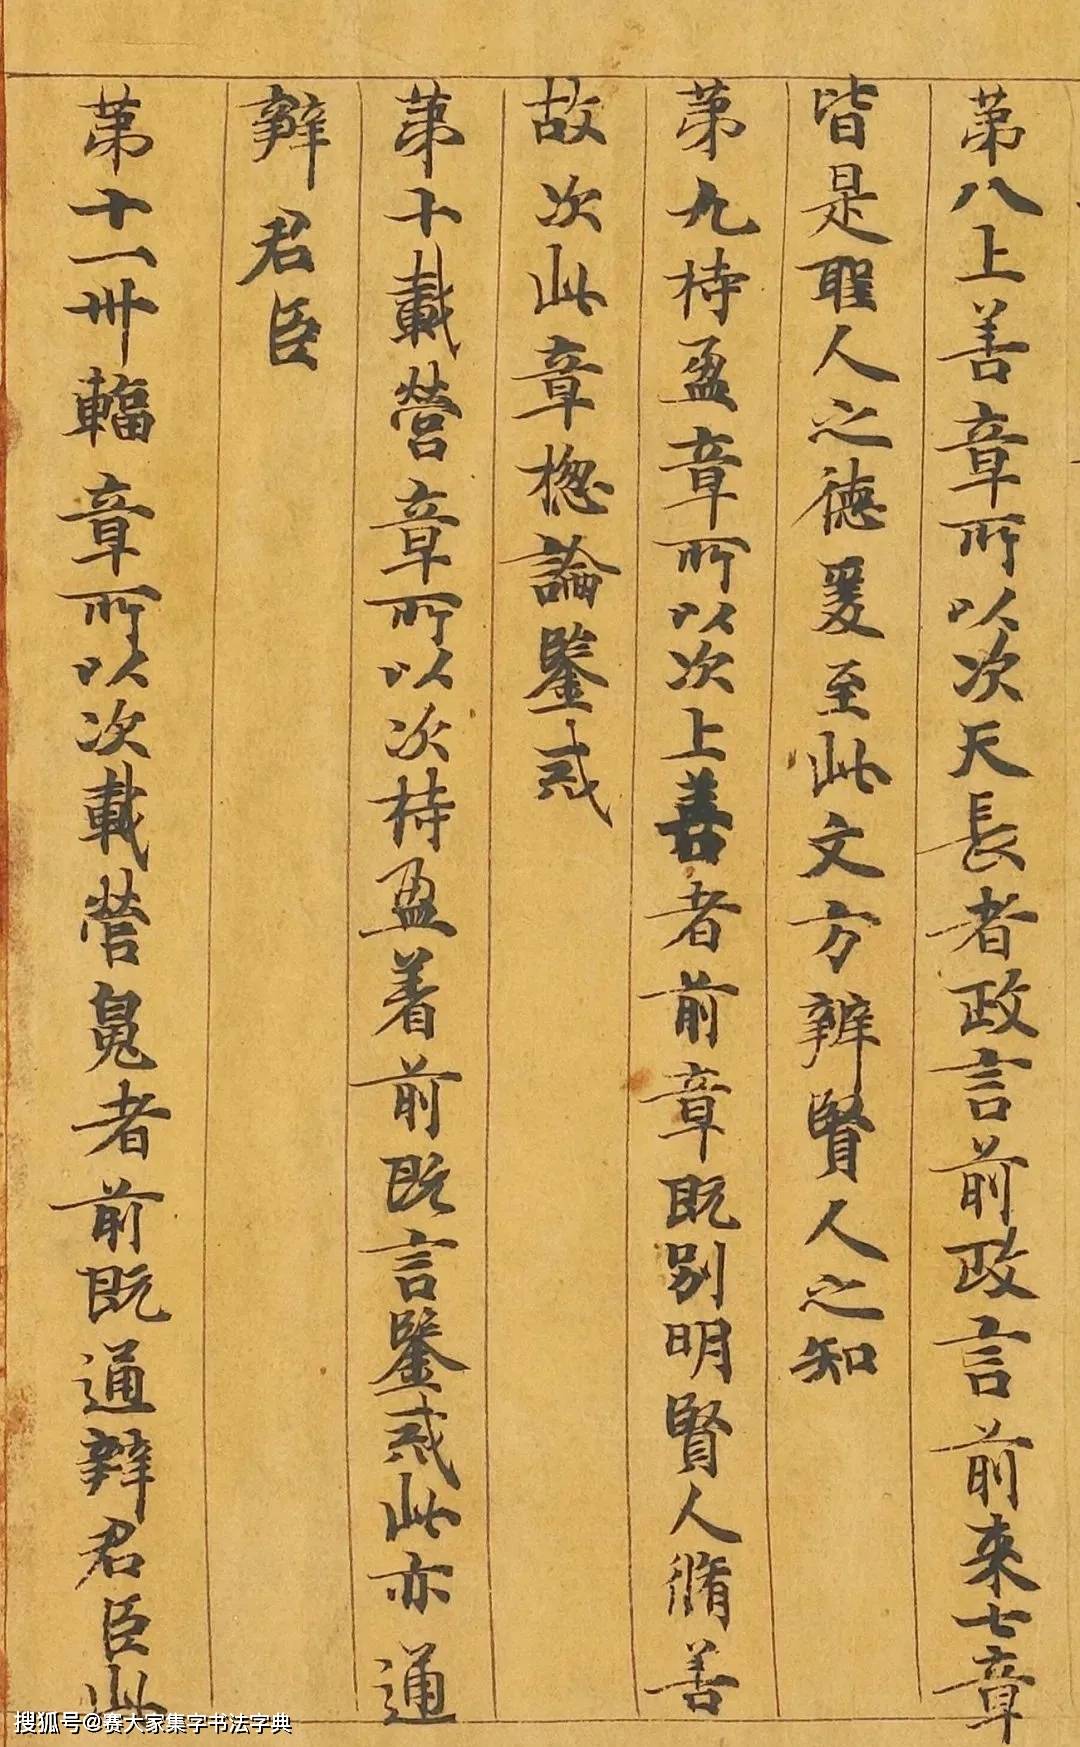 第八上善章所以次天長者政言前政言前来七章
皆是聖人之德爰至此文方辨賢人之知
第九持盈章所以次上善者前章既別明賢人脩善
故次此章惣論鑒戒
第十載營章所以次持盈着前既言鑒戒此亦通
辯君臣
第十一卅輻章所以次載營㲋者前既通辯君臣此
搜狐号@赛大家集字书法字典